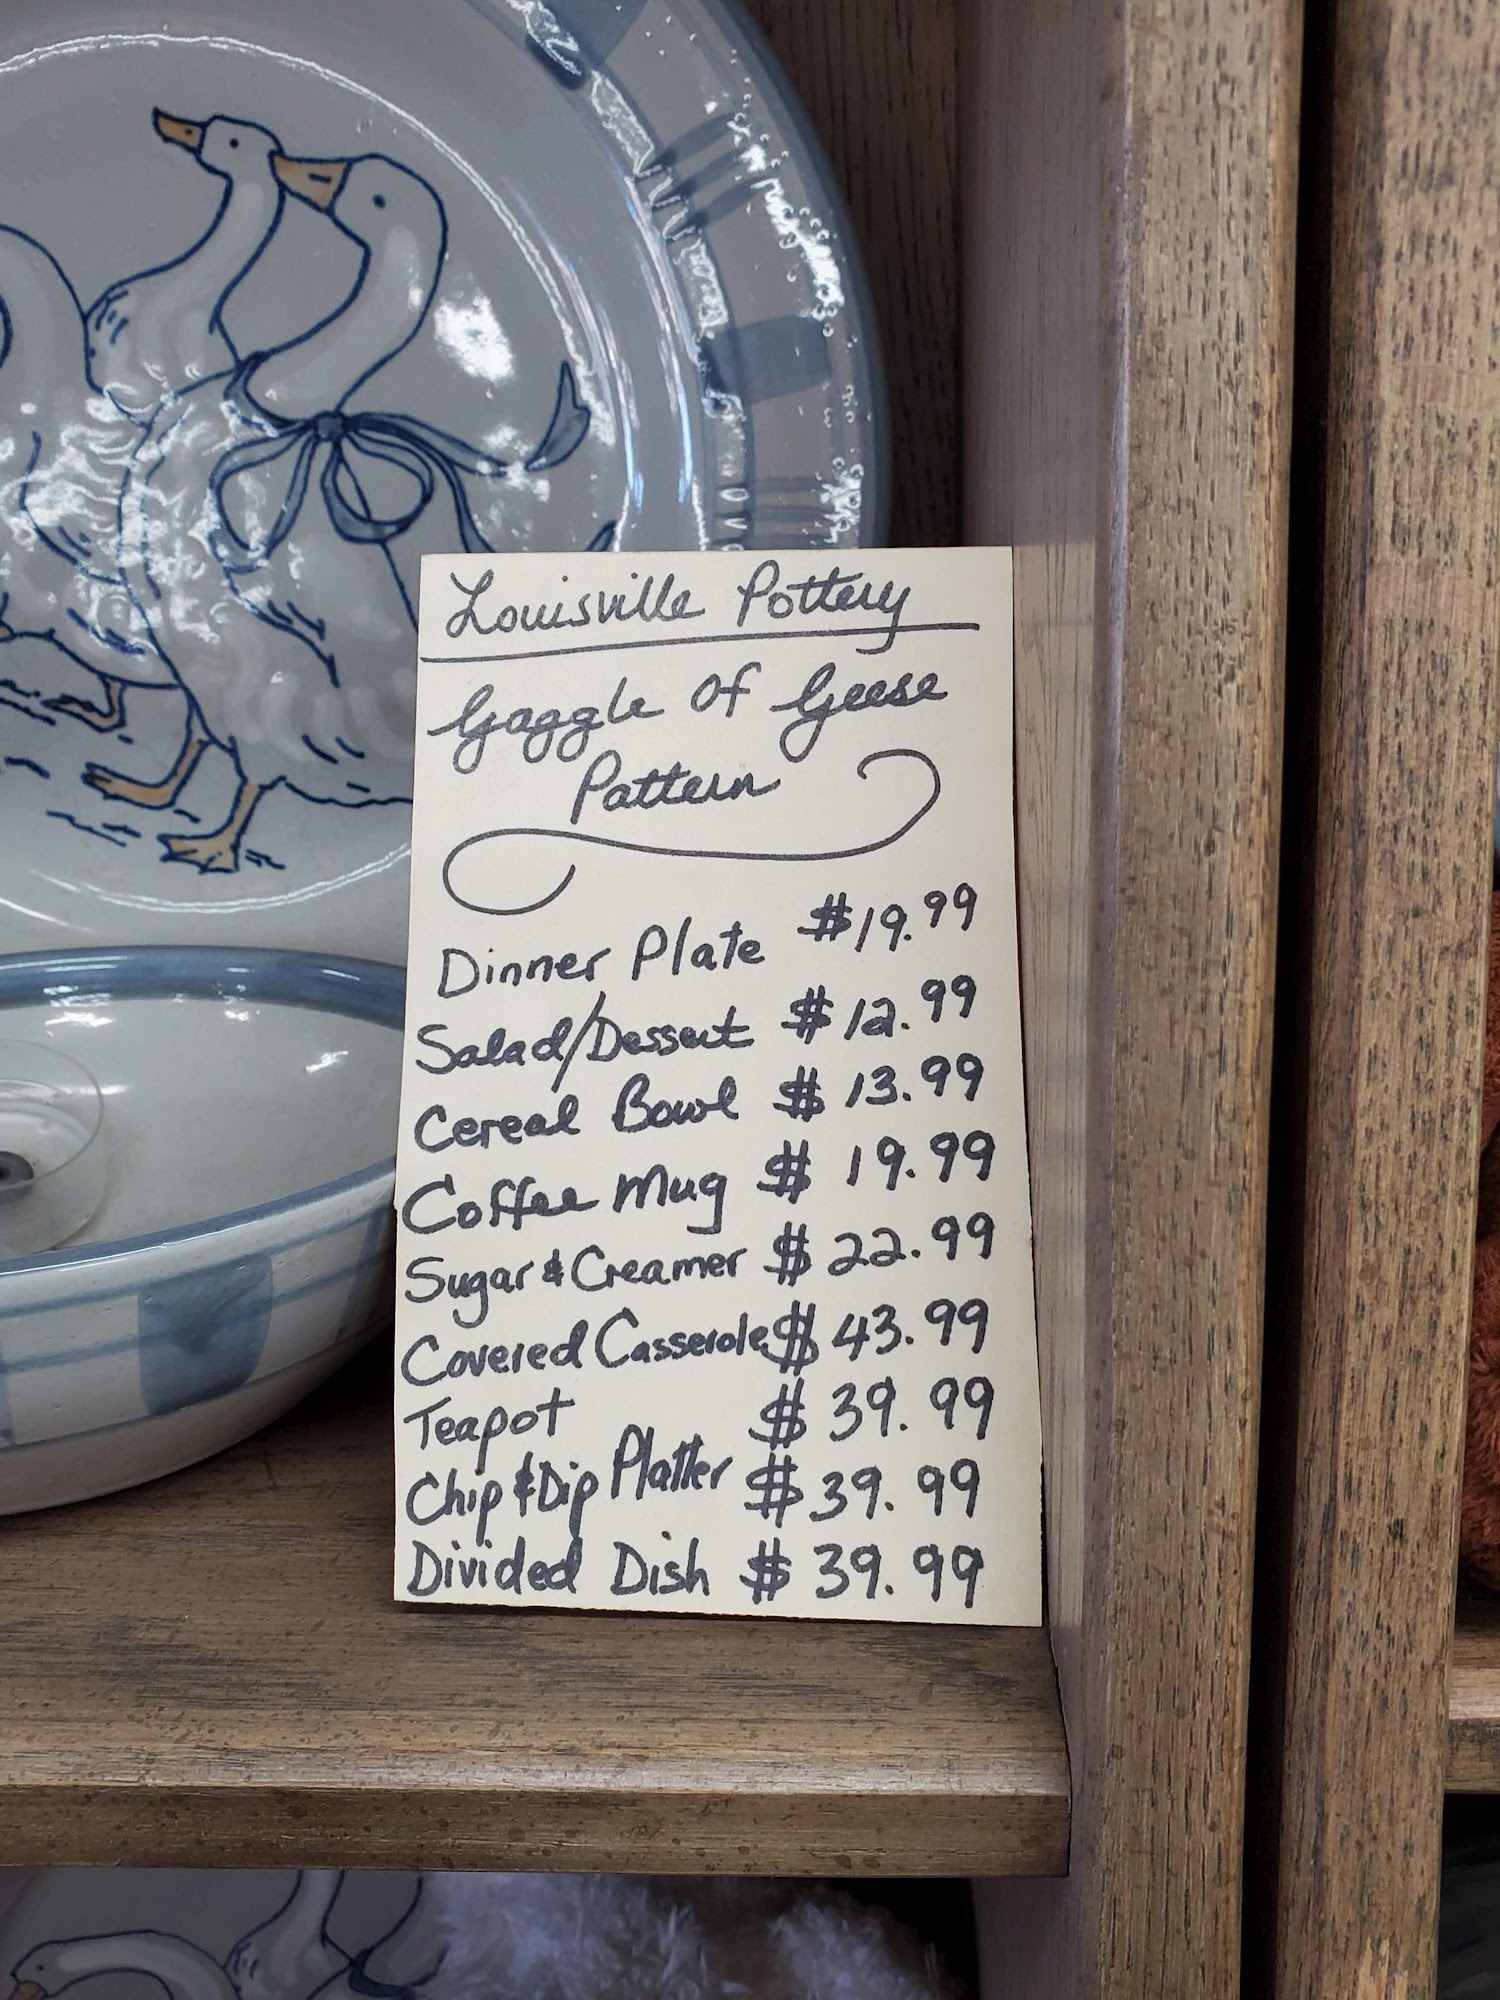 Louisville Pottery
Gaggle Of Geese
Pattern
Dinner Plate $19.99
Salad/Dessert $12.99
Cereal Bowl $13.99
Coffee Mug $19.99
Sugar & Creamer $22.99
Covered Casserole $43.99
Teapot $39.99
Chip & Dip Platter $39.99
Divided Dish $39.99